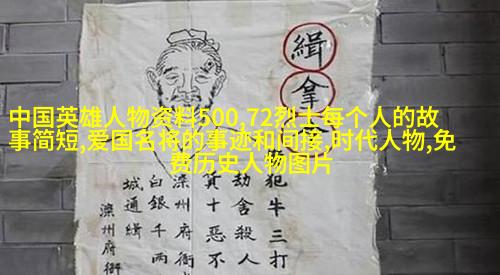 中国英雄人物资料500,72烈士每个人的故
事简短,爱国名将的事迹和间接,时代人物,免
费历史人物图片
緝拿
犯牛三打
劫舍殺人
十惡不
滦州府衙
白銀千两
城通緝
滦州府衙